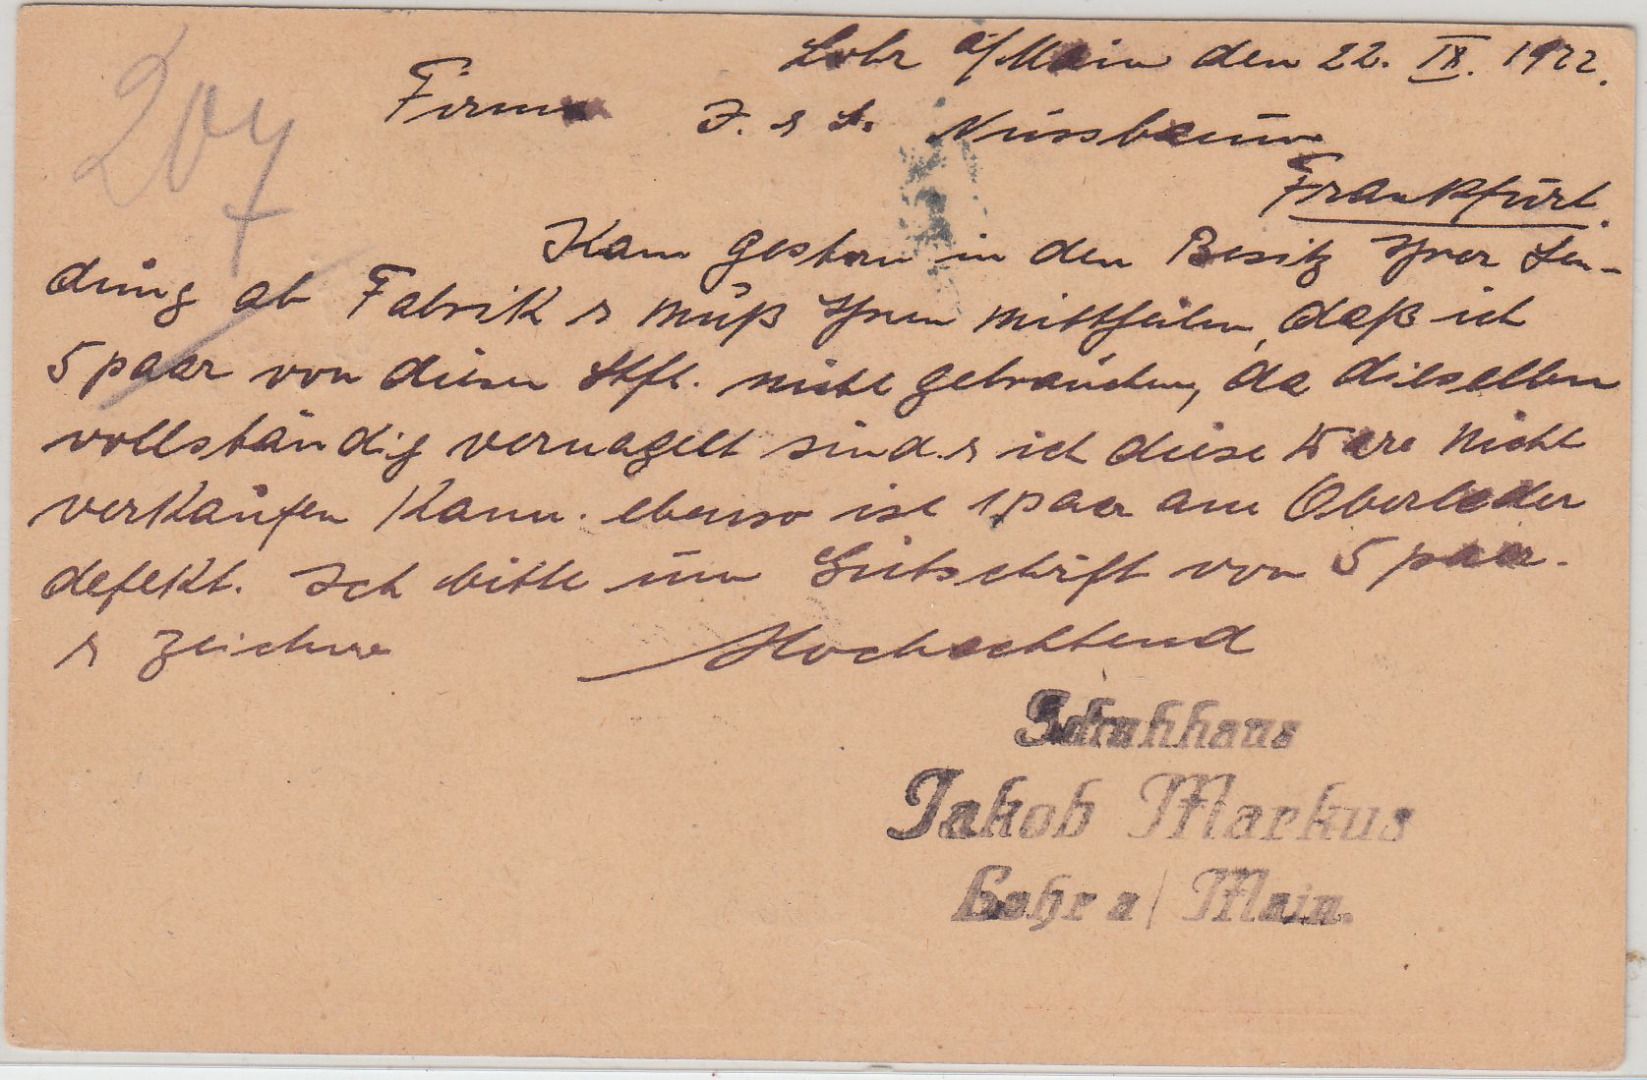 Lohr a/Main den 22. IX. 1922.
Firma J. & S. Nussbaum
Frankfurt.
207
Kam gestern in den Besitz Ihrer Sen-
dung ab Fabrik & muß Ihnen mittheilen, daß ich
5 paar von diesen Stfl. nicht gebrauchen, da dieselben
vollständig vernagelt sind. & ich diese Ware nicht
verkaufen kann. ebenso ist 1 paar am Oberleder
defekt. Ich bitte um Gutschrift von 5 paar.
& zeichne Hochachtend
Schuhhaus
Jakob Markus
Lohr a/Main.